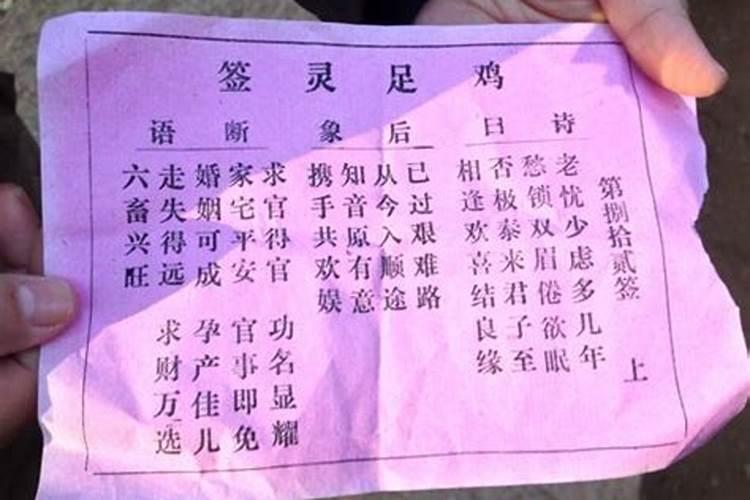 鸡足灵签
第捌拾贰签 上
诗曰
老忧少虑多几年
愁锁双眉倦欲眠
否极泰来君子至
相逢欢喜结良缘
后象
已过艰难路
从今入顺途
知音原有意
携手共欢娱
断语
求官得官
家宅平安
婚姻可成
走失得远
六畜兴旺
功名显耀
官事即免
孕产佳儿
求财万选